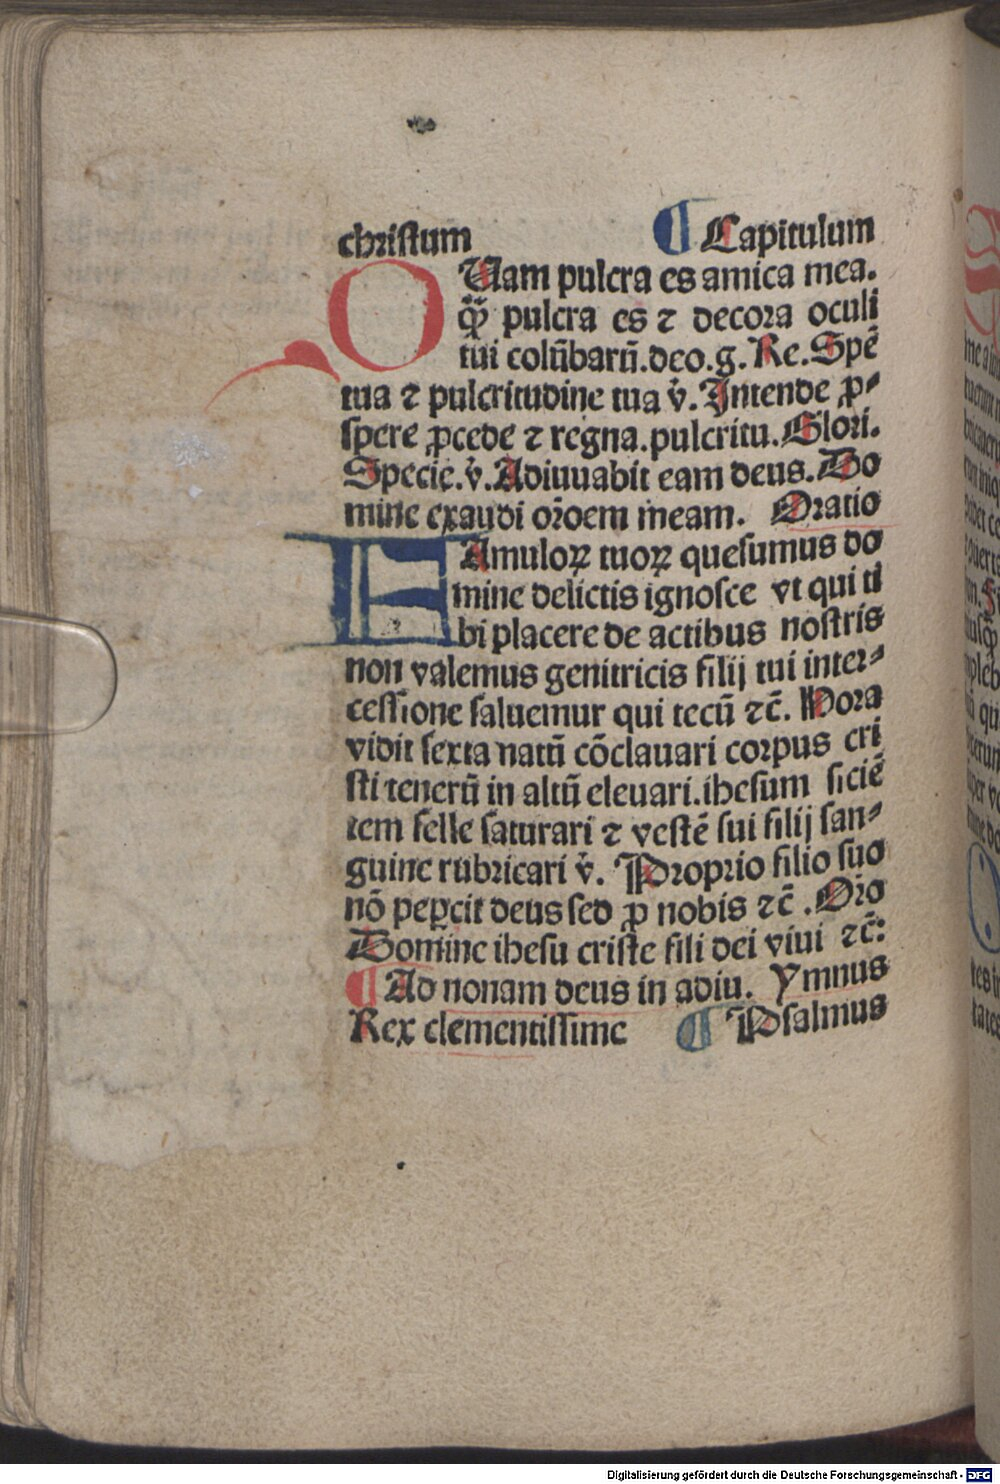 christum ¶ Capitulum
QUam pulcra es amica mea.
q̄ꝫ pulcra es ⁊ decora oculi
tui colūbarū.deo.g. Re. Spē
tua ⁊ pulcritudine tua v̇. Intende ꝓ⸗
spere ꝓcede ⁊ regna.pulcritu. Glori.
Specie.v̇. Adiuuabit eam deus. Do
mine exaudi or̄oem meam. Oratio
FAmuloꝝ tuoꝝ quesumus do
mine delictis ignosce vt qui ti
bi placere de actibus nostris
non valemus genitricis filij tui inter⸗
cessione saluemur qui tecū ⁊c̄. Hora
vidit sexta natū cōclauari corpus cri
sti tenerū in altū eleuari.ihesum siciē
tem felle saturari ⁊ vestē sui filij san⸗
guine rubricari v̇. Proprio filio suo
nō peꝑcit deus sed ꝓ nobis ⁊c̄. Or̄o
Domine ihesu criste fili dei viui ⁊c̄:
¶ Ad nonam deus in adiu. Ymnus
Rex clementissime ¶ Psalmus
Digitalisierung gefördert durch die Deutsche Forschungsgemeinschaft - DFG